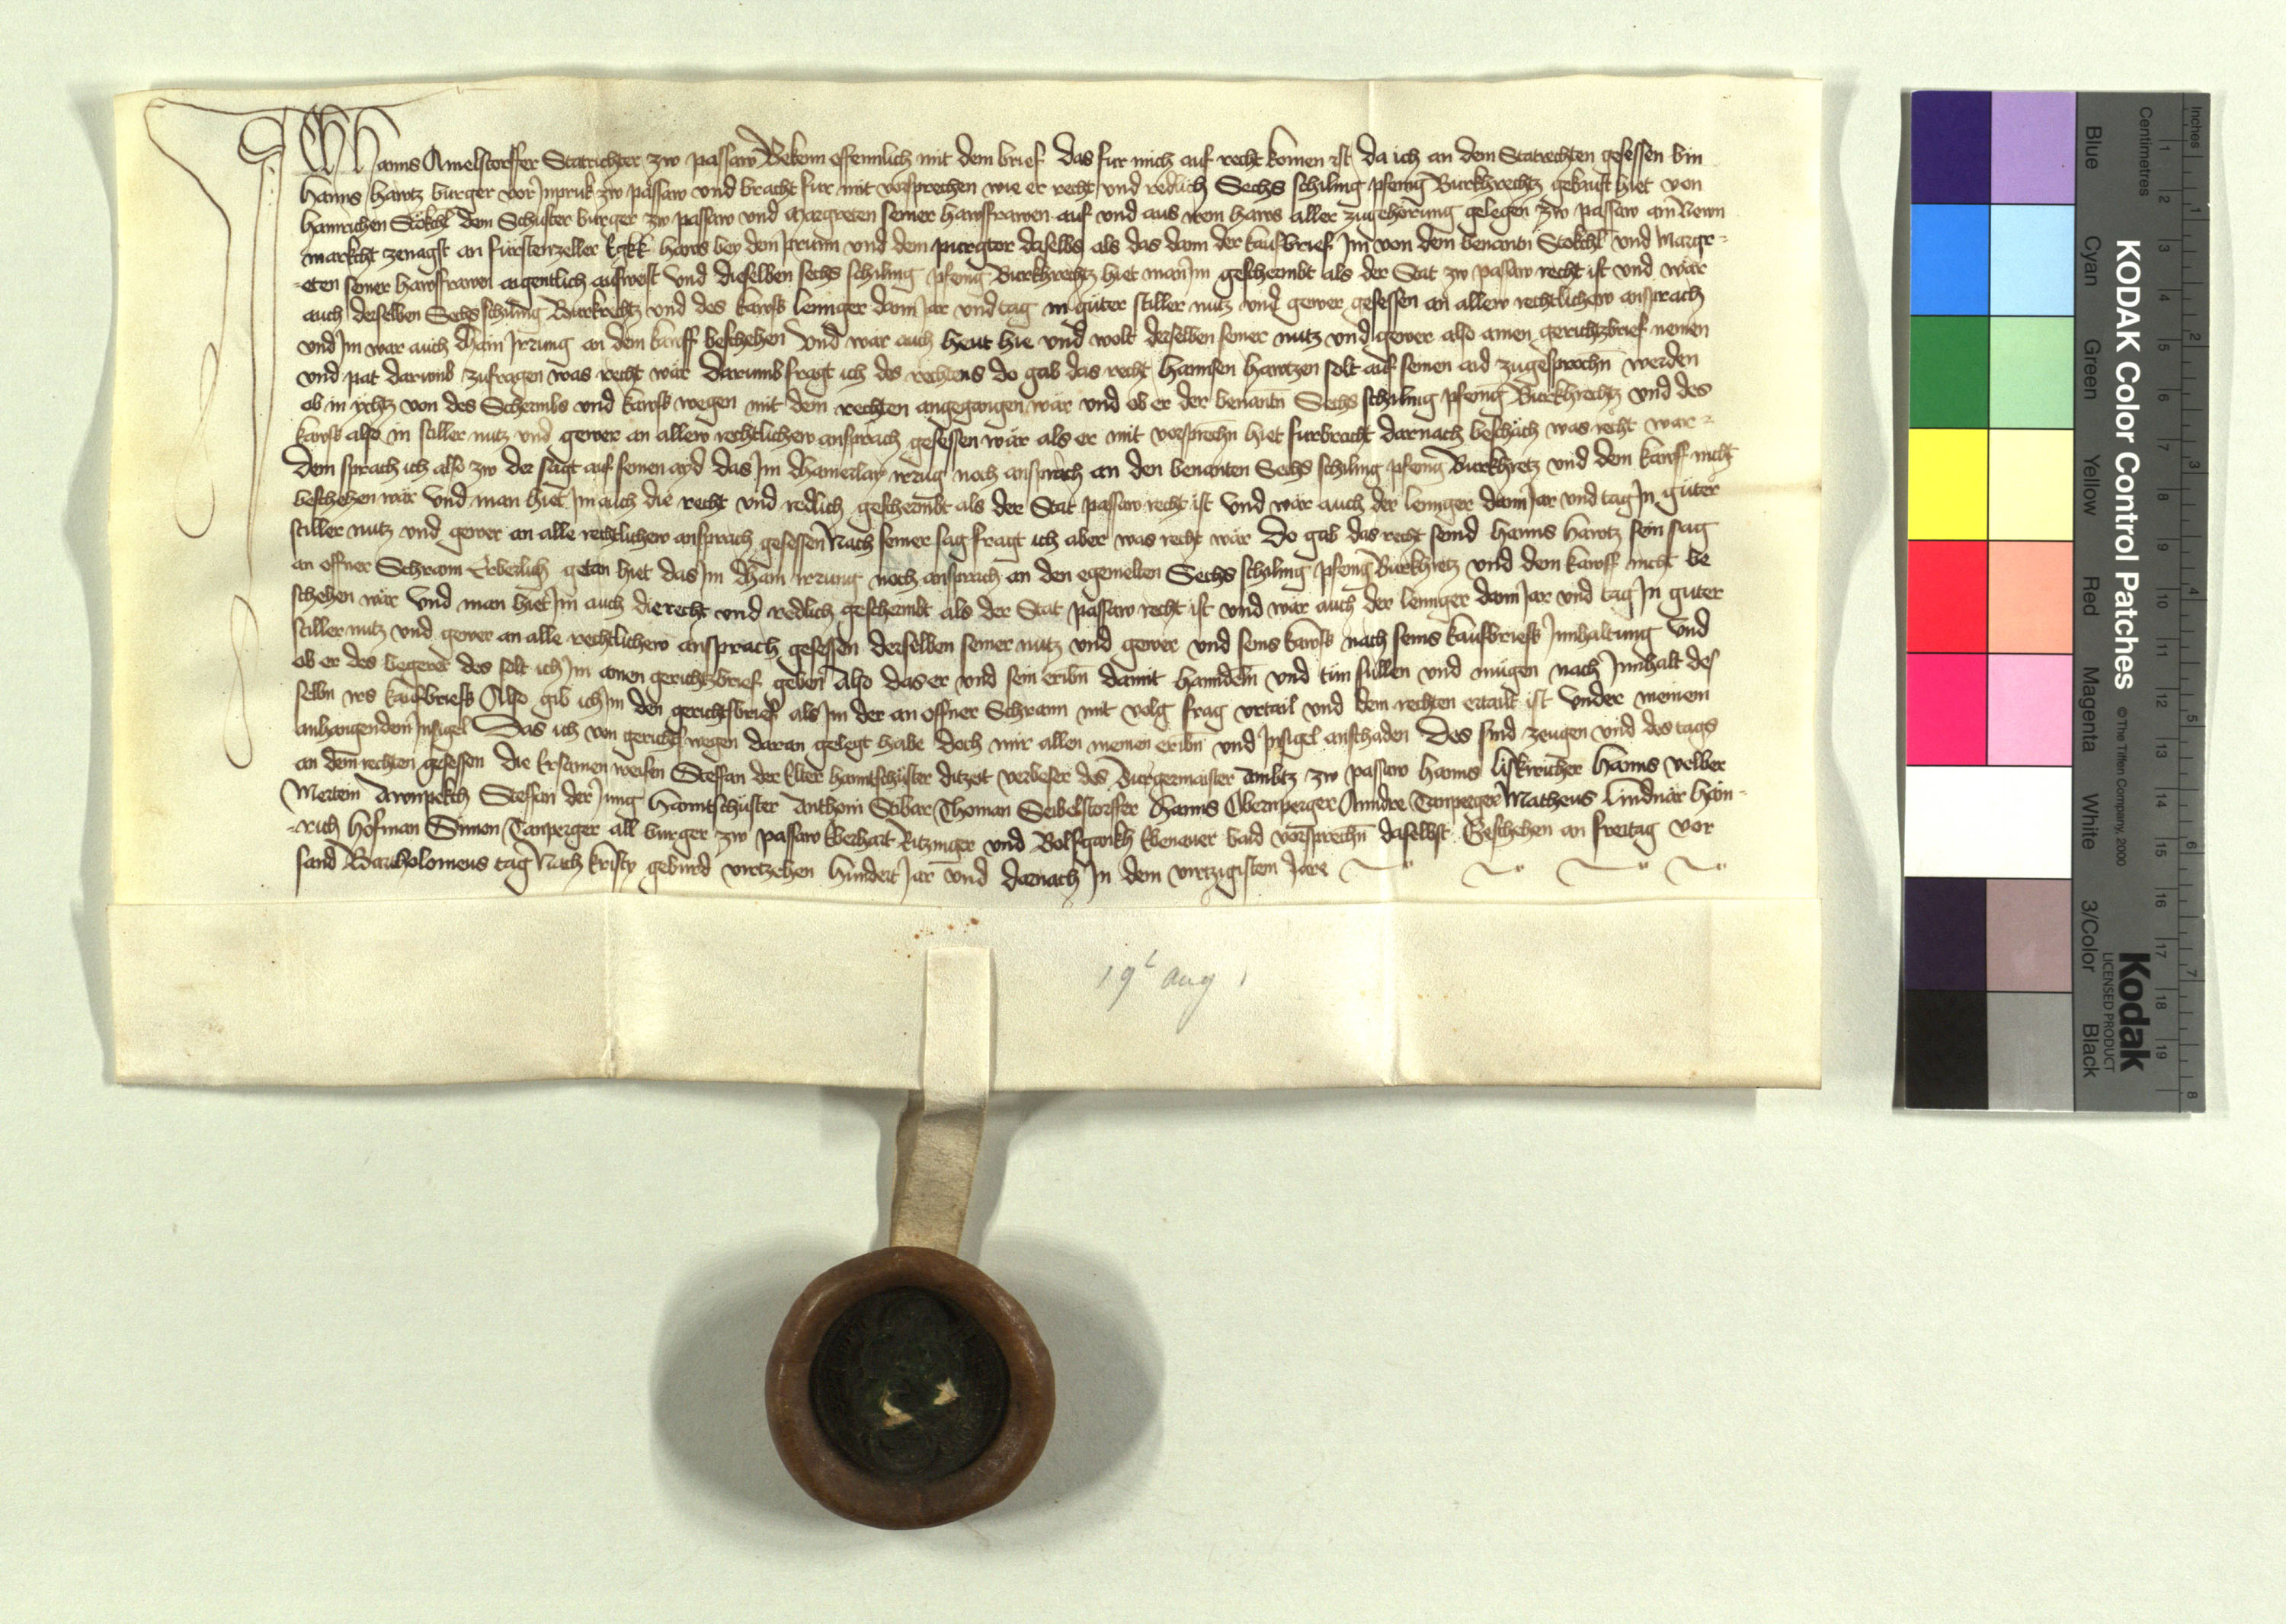 Ich Hanns Amelstorffer Statrichter zw passaw Bekenn offennlich mit dem brief das fur mich auf recht komen ist da ich an dem Statrechten gesessen bin
Hanns Hawtz burger vor Jnpruk zw passaw vnd bracht fur mit vorsprechen wie er recht vnd redlich Sechs schiling pfenig Burkhrechtz gekauft hiet von
Hainrichen Stökchl dem Schuster burger zw passaw vnd Margreten seiner hawsfrawen auf vnd aus irem haws aller zugehorung gelegen zw passaw am Newn
markcht zenagst an furstenzeller Ekk haws bey dem prunn vnd dem purgtor daselbs als das dann der kaufbrief Jm von dem benantn Stökchl vnd Margr=
=eten seiner hawsfrawen aigentlich ausweist vnd dieselben sechs schiling pfenig Burkhrechtz hiet man Jm geschermbt als der Stat zw passaw recht ist vnd wär
auch derselben Sechs schiling Burkrechtz vnd des kawfs lennger dann Jar vnd tag in güter stiller nutz vnd gewer gesessen an allew rechtlichew ansprach
vnd Jm war auch dhain Jrrung an dem kauff beschehen vnd war auch heut hie vnd wolt derselben seiner nutz vnd gewer also ainen gerichtzbrief nemen
vnd pat darumb zufragen was recht wär darumb fragt ich des rechtens do gab das recht Hannsen Hawtzen solt auf seinen aid zugesprochn werden
ob in ychtz von des Schermbs vnd kawfs wegen mit dem rechten angegangen wär vnd ob er der benantn Sechs schiling pfenig Burkhrechtz vnd des
kawfs also in stiller nutz vnd gewer an allew rechtlichew ansprach gesessen wär als er mit vorsprechn hiet furbracht darnach beschäch was recht war=
Dem sprach ich also zw der sagt auf seinen ayd das Jm dhainerlay irrüg noch ansprach an den benanten Sechs schiling pfenig Burkhretz vnd dem kawff nicht
beschehen wär vnd man hiet Jm auch die recht vnd redlich geschermbt als der Stat passaw recht ist vnd wär auch der lennger dann Jar vnd tag Jn güter
stiller nutz vnd gewer an alle rechtlichew ansprach gesessen Nach seiner sag fragt ich aber was recht wär Do gab das recht seind Hanns Hawtz sein sag
an offner Schrann Erberlich getan hiet das Jm dhain irrung noch ansprach an den egemelten Sechs schiling pfenig Burkhretz vnd dem kawff nicht be
schehen wär vnd man hiet Jm auch die recht vnd redlich geschermbt als der Stat passaw recht ist vnd wär auch der lennger dann Jar vnd tag Jn guter
stiller nutz vnd gewer an alle rechtlichew ansprach gesessen derselben seiner nutz vnd gewer vnd seins kawfs nach seins kaufbriefs Jnnhaltung vnd
ob er des begeret des solt ich Jm ainen gerichtzbrief geben Also das er vnd sein eribn damit hanndeln vnd tun sullen vnd mugen nach Jnnhalt des
selbn irs kaufbriefs Also gib ich Jm den gerichtsbrief als Jm der an offner Schrann mit volg frag vrtail vnd dem rechten ertailt ist vnder meinem
anhangendem Jnsigel Das ich von gerichts wegen daran gelegt habe doch mir allen meinen eribn vnd Jnsigel anschaden Des sind zeugen vnd des tags
an dem rechten gesessen die Ersamen weisen Steffan der Elter Hanntschüster ditzeit verbeser des Burgermaister ambtz zw passaw Hanns Liskircher Hanns velber
Mertein Awnpekch Stefan der Jung Hanntschuster Anthoni Stibar Thoman Seibelstorffer Hanns Obernperger Anndre Tanperger Matheus Lindnär Hain=
=rich Hofman Simon Tanperger all burger zw passaw Eberhart Ritzinger vnd Wolfgankh Ebenawer baid vorsprechn daselbst Geschehen an freitag vor
sand Bartholomeus tag Nach kristy geburd virtzehen Hundert Jar vnd darnach Jn dem virtzigistem Jare
19t aug
KODAK Color Control Patches
© The Tiffen Company, 2000
Kodak
LICENSED PRODUCT
Blue Cyan Green Yellow Red Magenta White 3/Color Black
Inches
Centimetres
1 2 3 4 5 6 7 8
1 2 3 4 5 6 7 8 9 10 11 12 13 14 15 16 17 18 19